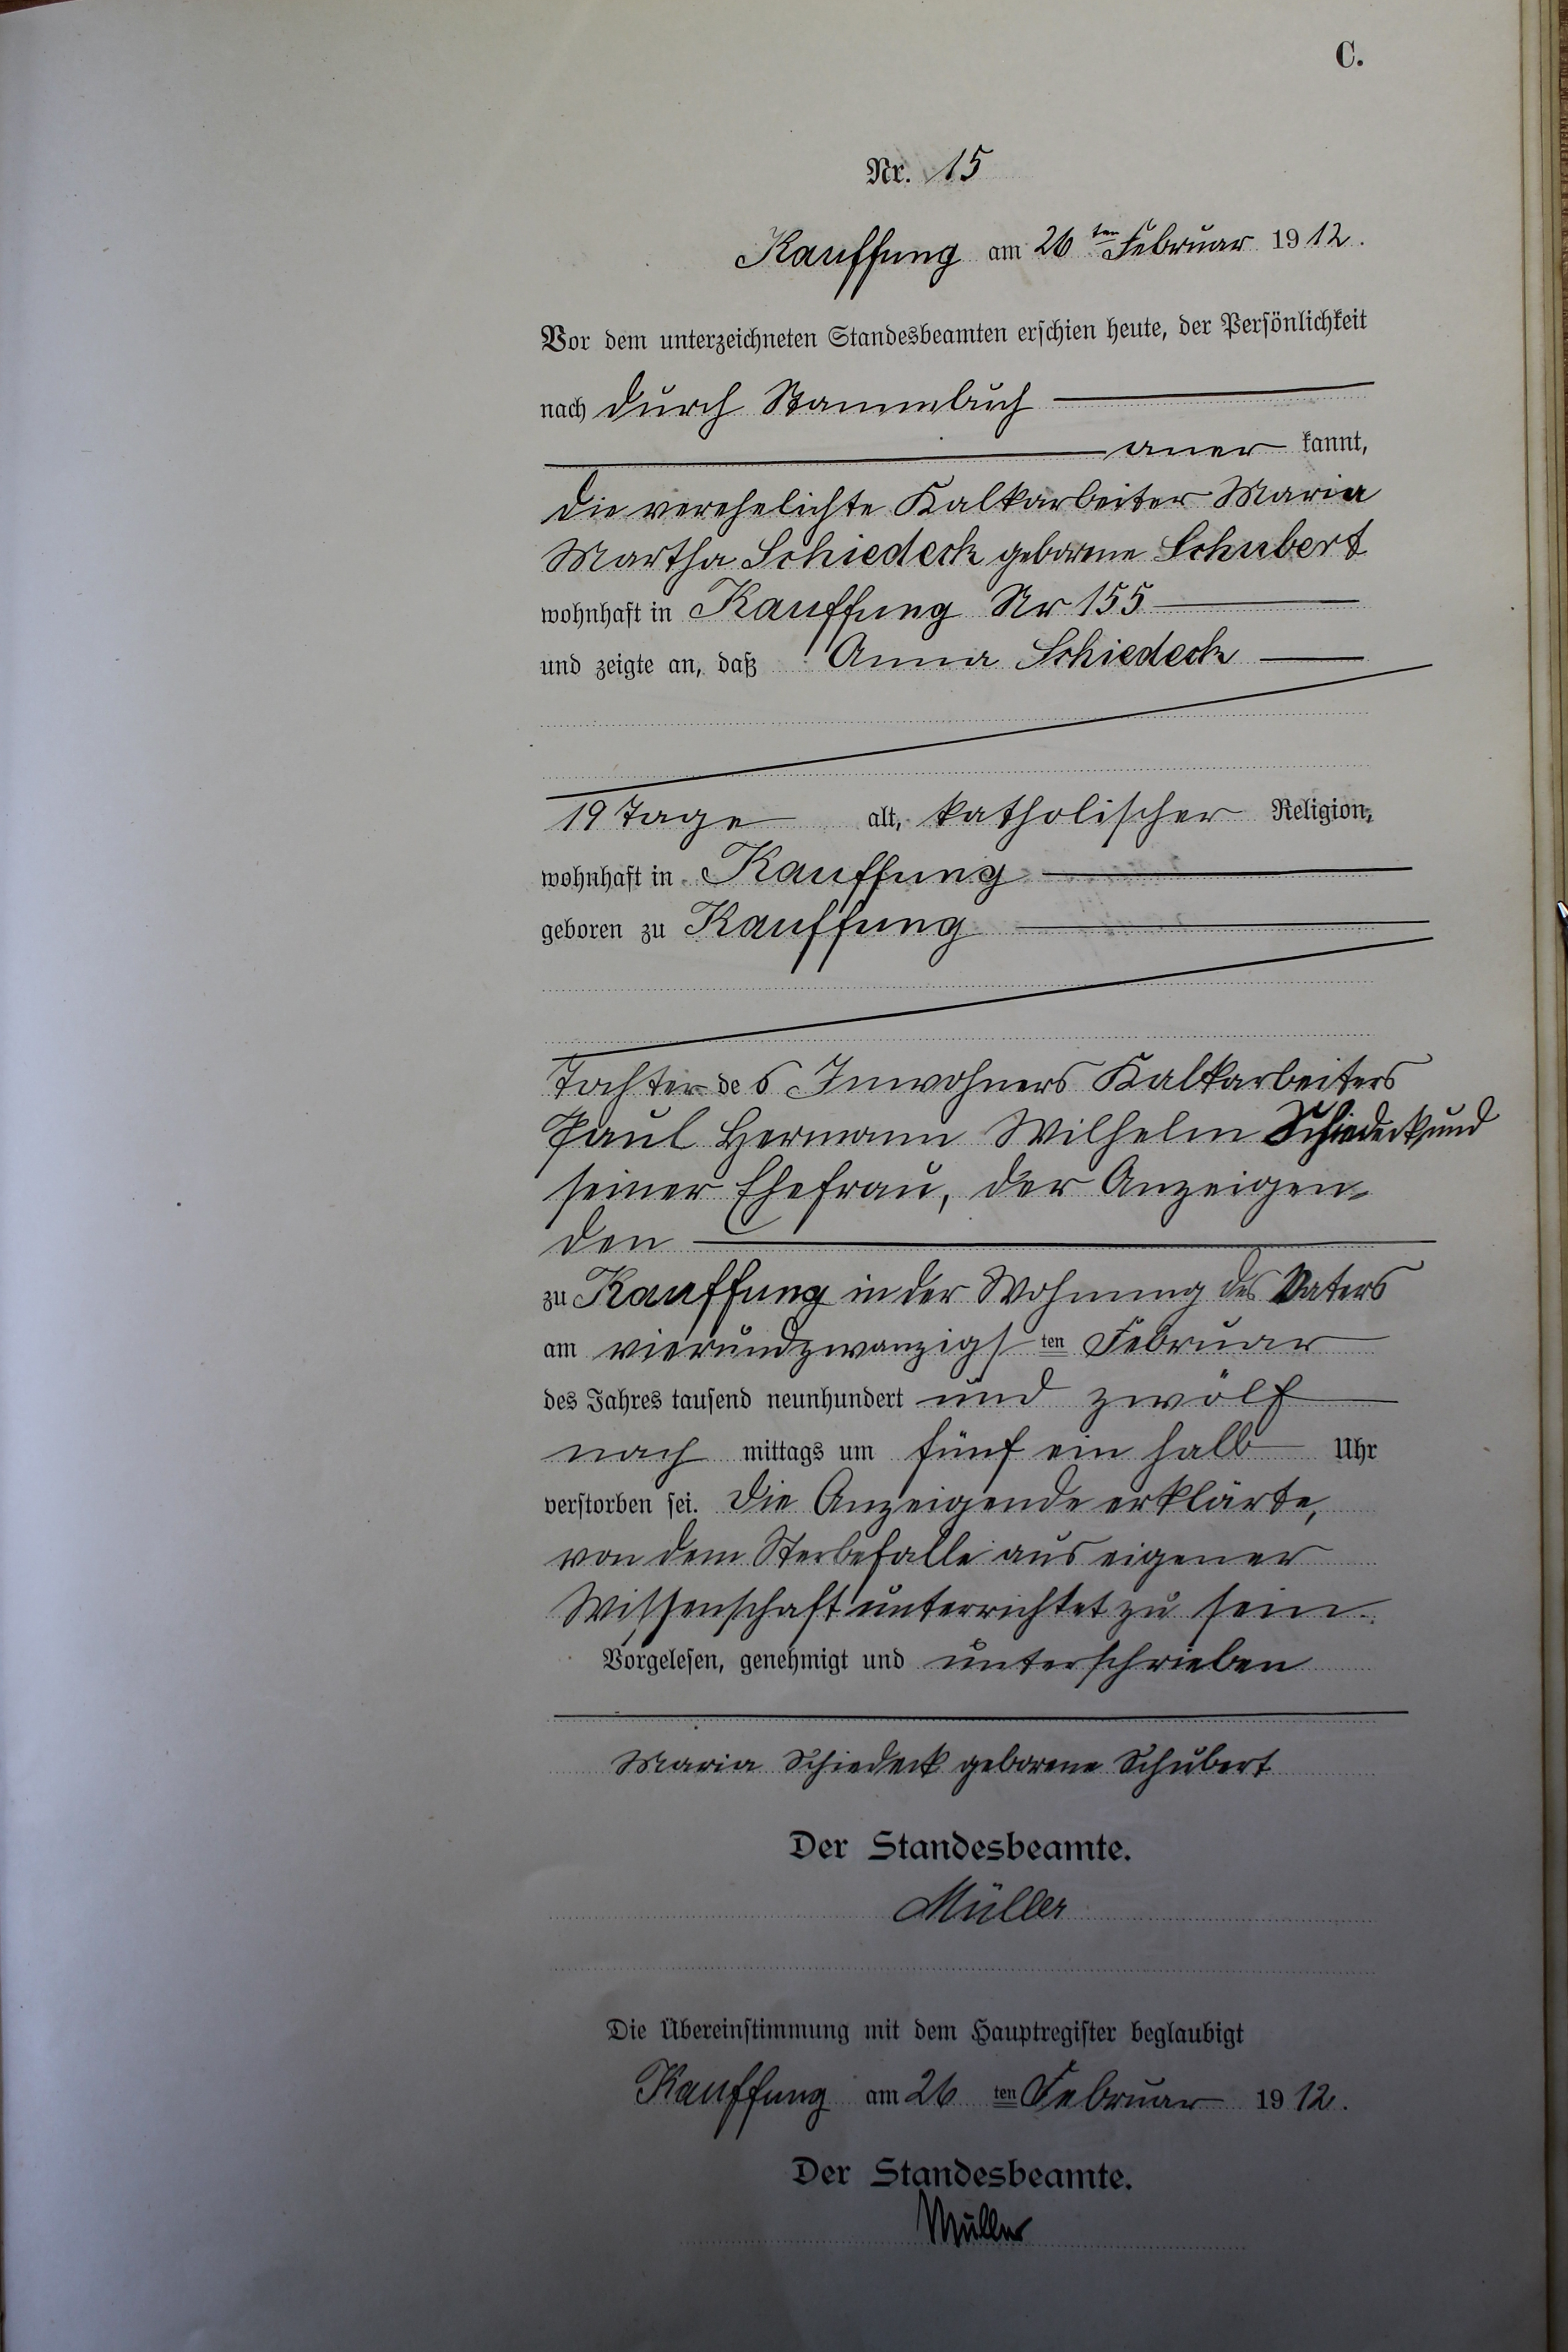 C.
Nr. 15
Kauffung am 26ten Februar 1912.
Vor dem unterzeichneten Standesbeamten erschien heute, der Persönlichkeit
nach durch Stammbuch
aner kannt,
die verehelichte Kalkarbeiter Maria
Martha Schiedeck geborene Schubert
wohnhaft in Kauffung Nr 155
und zeigte an, daß Anna Schiedeck
19 Tage alt, katholischer Religion,
wohnhaft in Kauffung
geboren zu Kauffung
Tochter des Inwohners Kalkarbeiters
Paul Hermann Wilhelm Schiedeck und
seiner Ehefrau, der Anzeigen-
den
zu Kauffung in der Wohnung des Vaters
am vierundzwanzigsten Februar
des Jahres tausend neunhundert und zwölf
nach mittags um fünf ein halb Uhr
verstorben sei. Die Anzeigende erklärte,
von dem Sterbefalle aus eigener
Wissenschaft unterrichtet zu sein.
Vorgelesen, genehmigt und unterschrieben
Maria Schiedeck geborene Schubert
Der Standesbeamte.
Müller
Die Übereinstimmung mit dem Hauptregister beglaubigt
Kauffung am 26ten Februar 1912.
Der Standesbeamte.
Müller